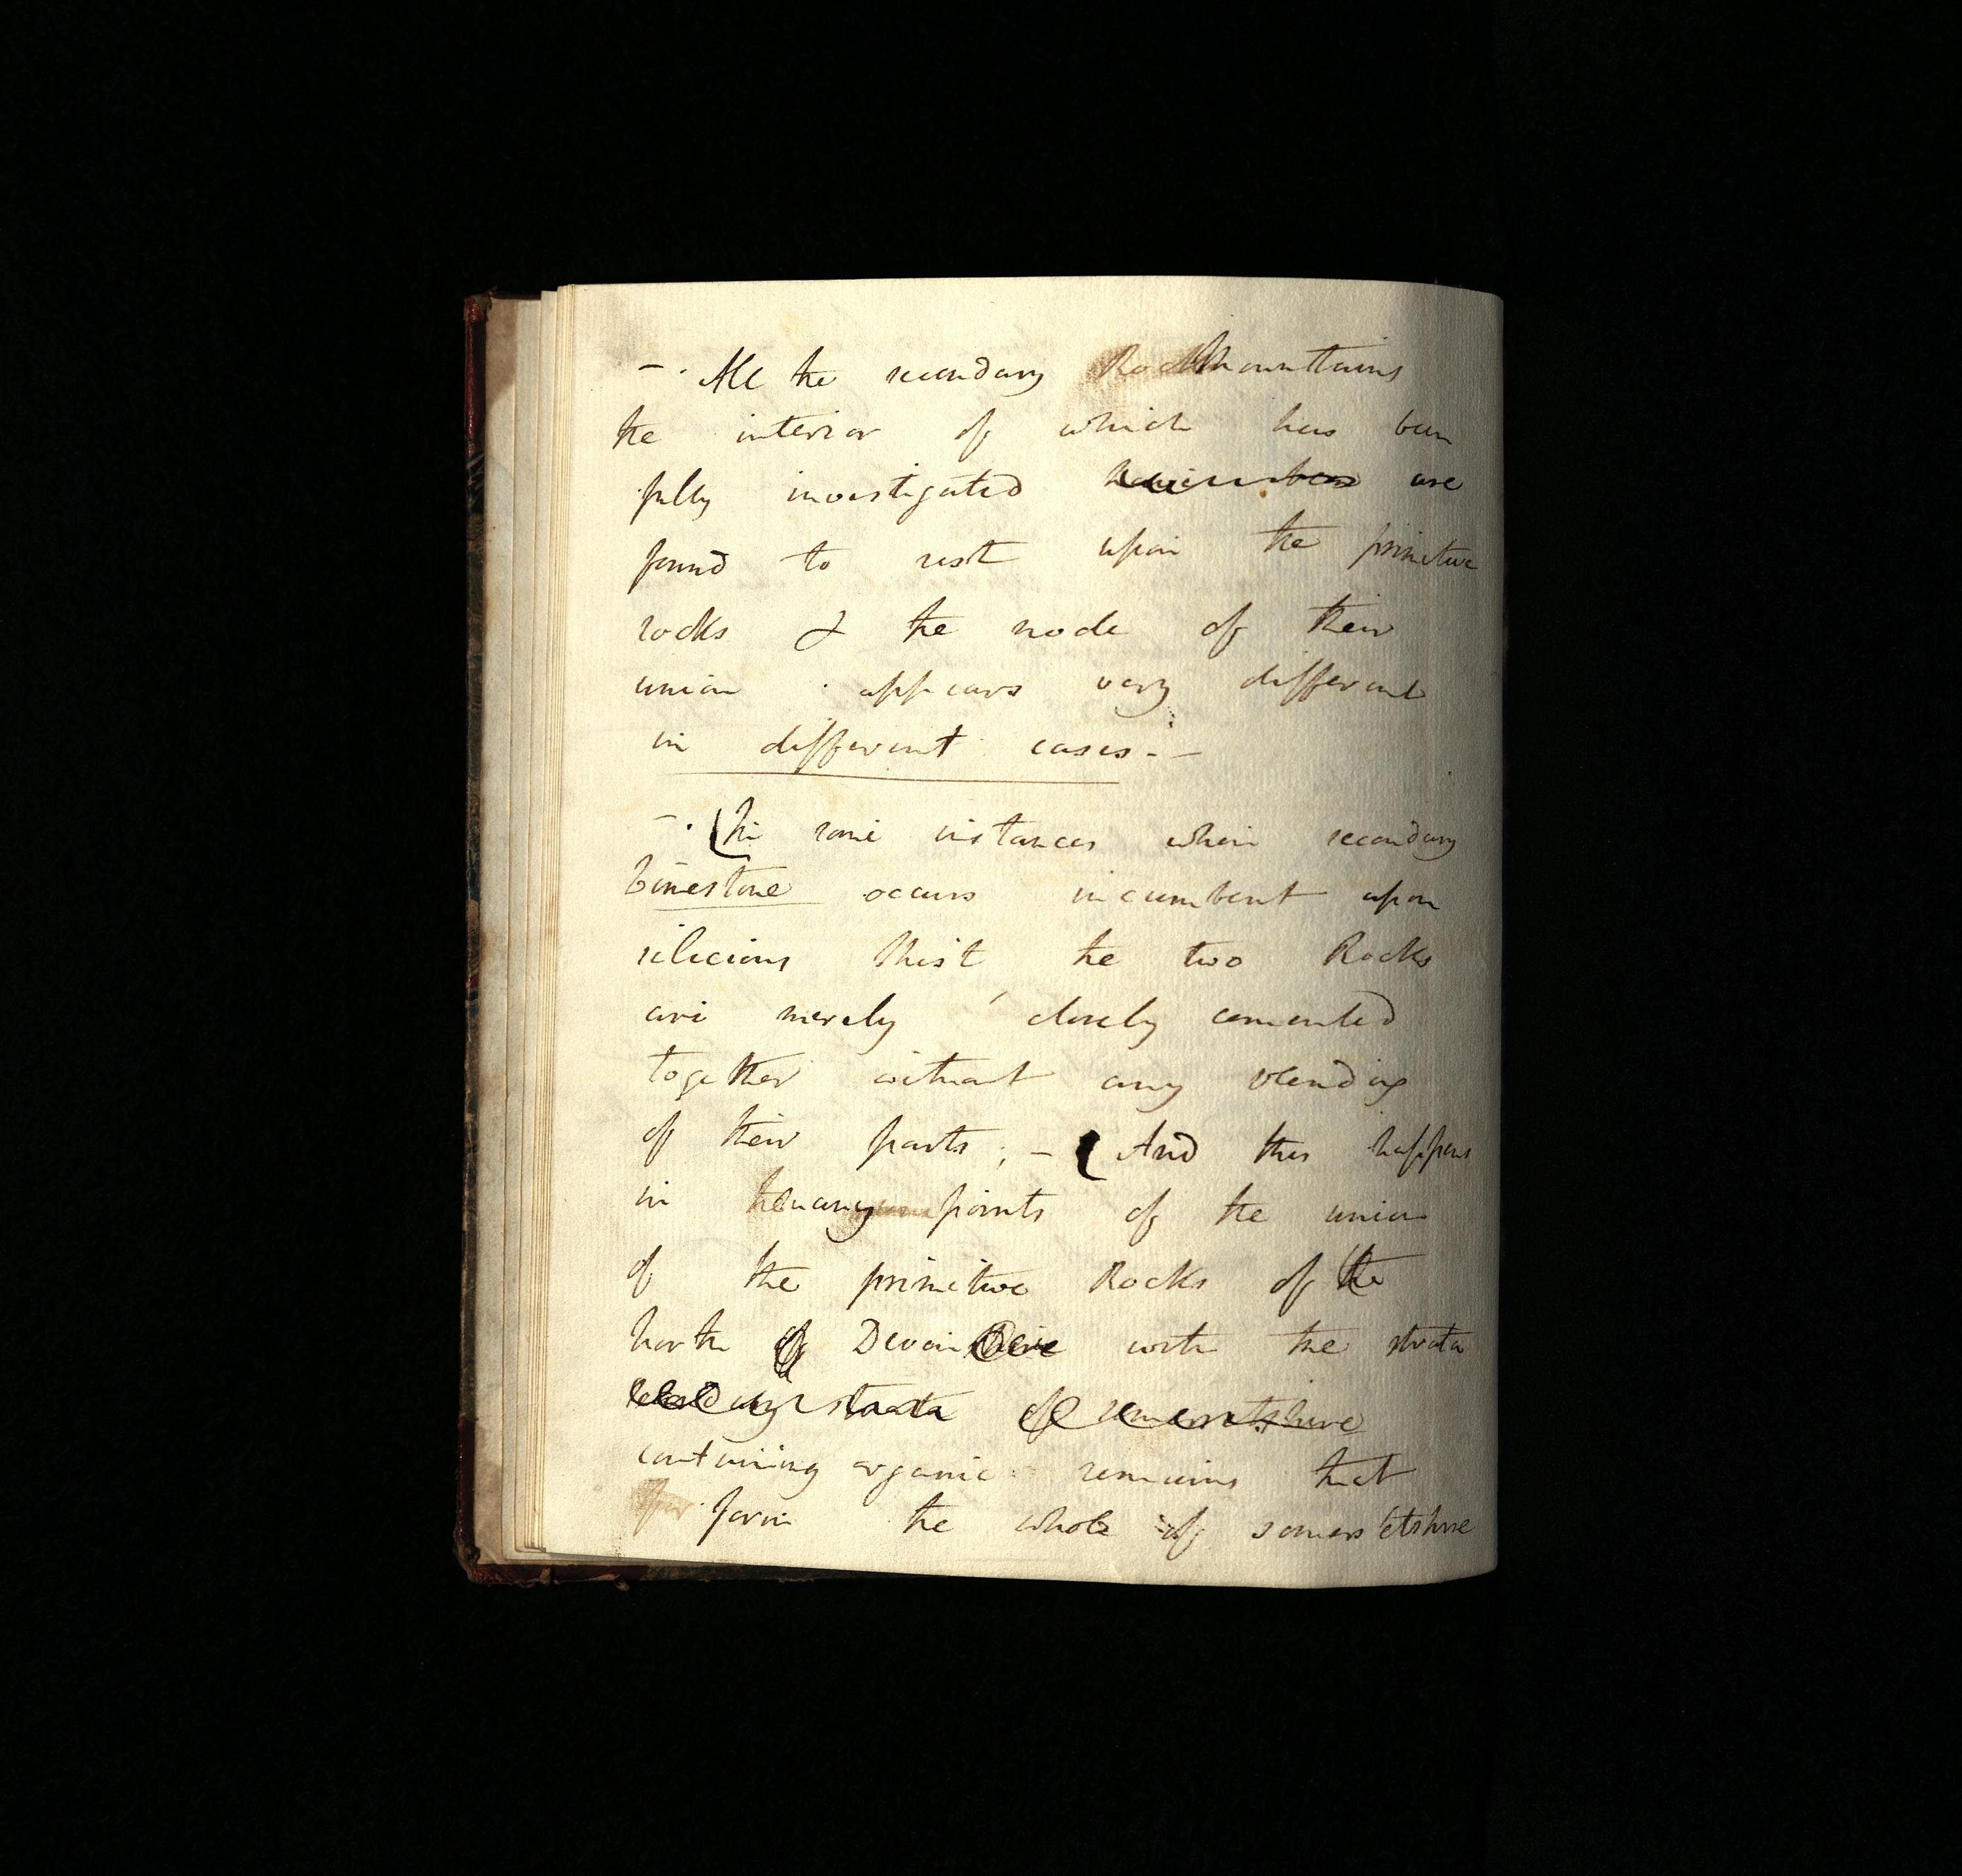 - . All the secondary Mountains
the interior of which has been
fully investigated have been are
found to rest upon the primitive
rocks & the mode of their
union appears very different
in different cases. -
- . In some instances when secondary
Limestone occurs incumbent upon
silicious Shist the two Rocks
are merely closely cemented
together without any blending
of their parts ; - And this happens
in many points of the union
of the primitive Rocks of the
North of Devonshire with the strata
strata of somersetshire
containing organic remains that
form the whole of somersetshire